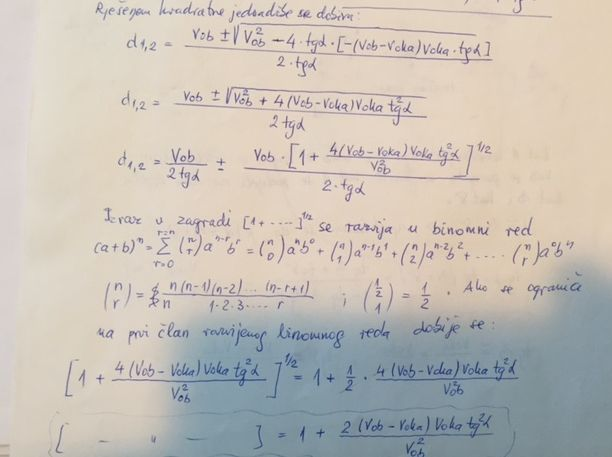 Rješenjem kvadratne jednadžbe se dobiva:
d1,2 = (Vob ± √(Vob² - 4·tgα·[-(Vob-Voka)Voka·tgα])) / (2·tgα)
d1,2 = (Vob ± √(Vob² + 4(Vob-Voka)Voka tg²α)) / (2tgα)
d1,2 = Vob / (2tgα) ± (Vob·[1 + 4(Vob-Voka)Voka tg²α / Vob²]^1/2) / (2·tgα)
Izraz u zagradi [1+ ----]^1/2 se razvija u binomni red
(a+b)^n = Σ (r=0, r=n) (n r) a^n-r b^r = (n 0) a^n b^0 + (n 1) a^n-1 b^1 + (n 2) a^n-2 b^2 + .... (n r) a^0 b^n
(n r) = n(n-1)(n-2)... (n-r+1) / 1·2·3.... r ; (1/2 1) = 1/2 . Ako se ograniče
na prvi član razvijenog binomnog reda dobije se:
[1 + 4(Vob-Voka)Voka tg²α / Vob²]^1/2 = 1 + 1/2 · 4(Vob-Voka)Voka tg²α / Vob²
[ — " — ] = 1 + 2(Vob-Voka)Voka tg²α / Vob²